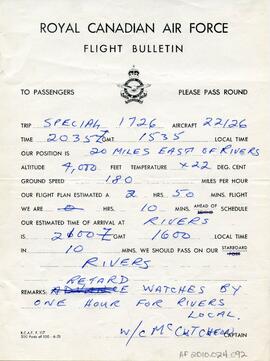 ROYAL CANADIAN AIR FORCE
FLIGHT BULLETIN
TO PASSENGERS PLEASE PASS ROUND
TRIP SPECIAL 1726 AIRCRAFT 22126
TIME 2035Z GMT 1535 LOCAL TIME
OUR POSITION IS 20 MILES EAST OF RIVERS
ALTITUDE 4,000 FEET TEMPERATURE +22 DEG. CENT
GROUND SPEED 180 MILES PER HOUR
OUR FLIGHT PLAN ESTIMATED A 2 HRS 50 MINS. FLIGHT
WE ARE 0 HRS. 10 MINS. AHEAD OF SCHEDULE
OUR ESTIMATED TIME OF ARRIVAL AT RIVERS
IS 2100Z GMT 1600 LOCAL TIME
IN 10 MINS. WE SHOULD PASS ON OUR STARBOARD
RIVERS
RETARD
REMARKS: ADVANCE WATCHES BY
ONE HOUR FOR RIVERS
LOCAL.
W/C McCUTCHEON
CAPTAIN
AF2010.024.092